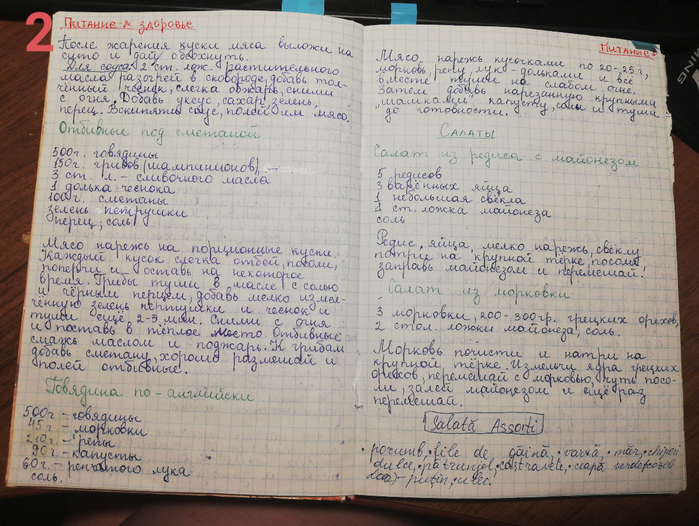 2
Питание & здоровье
После жарения куски мяса выложи на
сито и дай обсохнуть.
Для соуса: 2 ст. лож. растительного
масла разогрей в сковороде, добавь тол-
чённый чеснок, слегка обжарь, сними
с огня. Добавь уксус, сахар, зелень,
перец. Вскипяти соус, полей им мясо.
Отбивные под сметаной
500г. говядины
150г. грибов (шампиньонов)
3 ст. л. - сливочного масла
1 долька чеснока
100г. сметаны
зелень петрушки
перец, соль
Мясо нарежь на порционные куски.
Каждый кусок слегка отбей, посоли,
поперчи и оставь на некоторое
время. Грибы туши в масле с солью
и чёрным перцем, добавь мелко измель-
чённую зелень петрушки и чеснок и
туши ещё 2-3 мин. Сними с огня
и поставь в тёплое место. Отбивные
смажь маслом и поджарь. К грибам
добавь сметану, хорошо размешай и
полей отбивные.
Говядина по-английски
500г - говядины
45г - морковки
210г - репы
90г - капусты
60г. - репчатого лука
соль.
Питание
Мясо, нарежь кусочками по 20-25г,
морковь, репу, лук - дольками и всё
вместе туши на слабом огне.
Затем добавь нарезанную крупными
"шашками" капусту, соль и туши
до готовности.
Салаты
Салат из редиса с майонезом
5 редисов
3 варённых яйца
1 небольшая свёкла
1 ст. ложка майонеза
соль
Редис, яйца, мелко нарежь, свёклу
потри на крупной тёрке, посоли,
заправь майонезом и перемешай.
Салат из морковки
3 морковки, 200-300гр. грецких орехов,
2 стол. ложки майонеза, соль.
Морковь почисти и натри на
крупной тёрке. Измельчи ядра грецких
орехов, перемешай с морковью, чуть посо-
ли, залей майонезом и ещё раз
перемешай.
Salată Assorti
porumb, file de găină, varză, măr, chiperi
dulce, pătrunjel, castravete, ceapă
puțin, ulei.